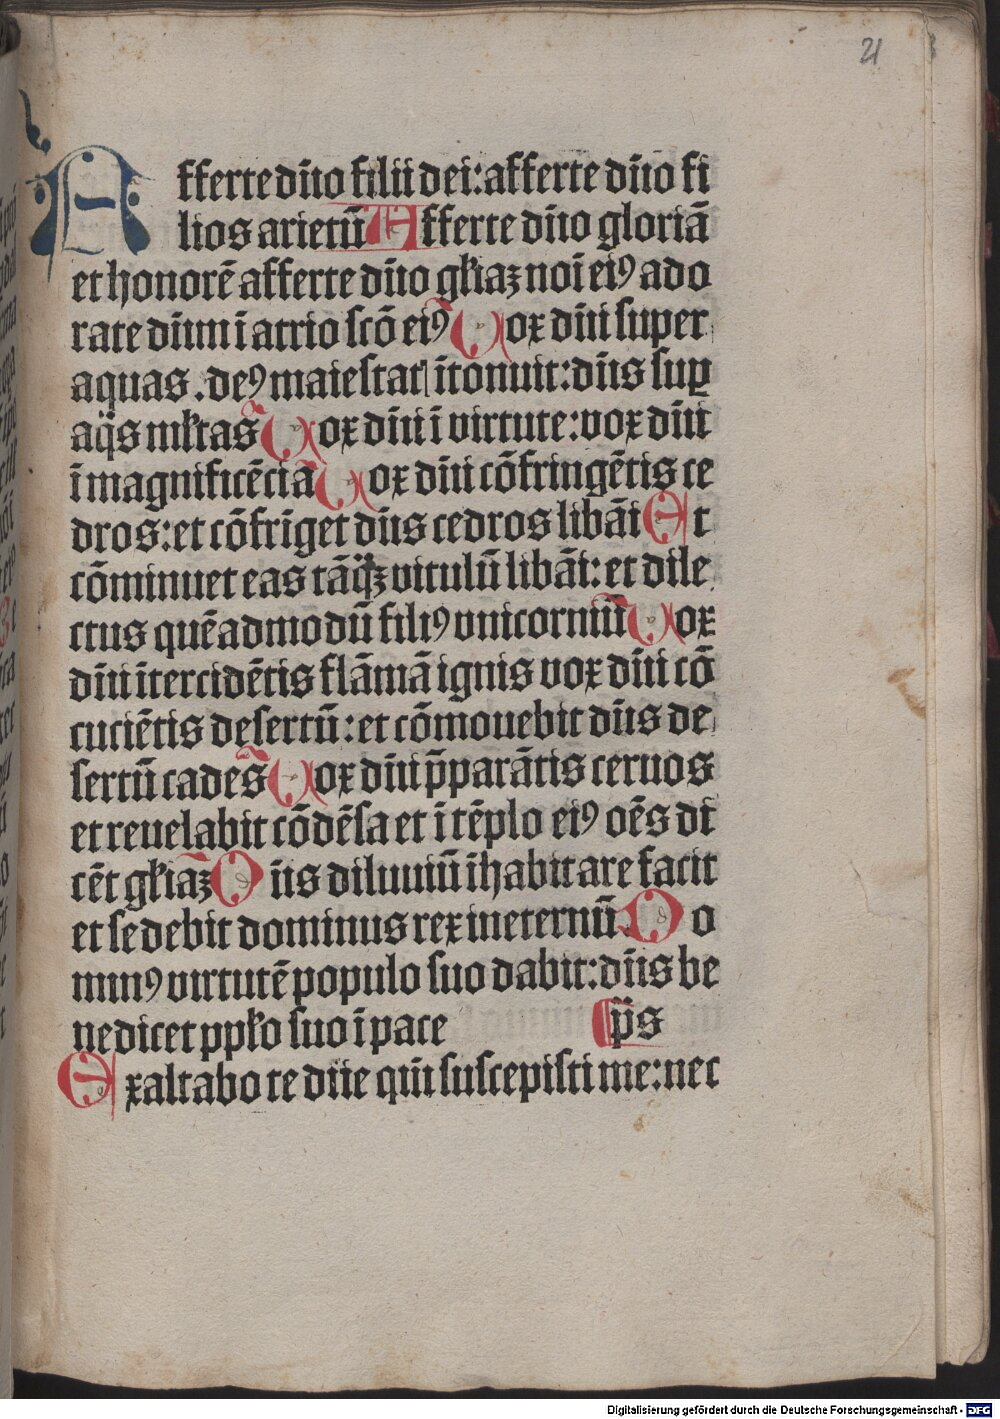 21
Afferte dñno filii dei: afferte dño fi
lios arietũ Afferte dño gloriã
et honorẽ afferte dño gl̃iaꝫ noĩ eiꝰ ado
rate dñm ĩ atrio scõ eiꝰ Vox dñi super
aquas . deꝰ maiestatꝭ ĩtonuit: dñs suꝑ
aq̃s ml̃tas Vox dñi ĩ virtute: vox dñi
ĩ magnificẽcia Vox dñi cõfringẽtis ce
dros: et cõfrĩget dñs cedros libãi Et
cõminuet eas tãq̃ꝫ vitulũ libãi: et dile
ctus quẽadmodũ filiꝰ vnicorniũ Vox
dñi ĩtercidẽtis flãmã ignis vox dñi cõ
cuciẽtis desertũ: et cõmouebit dñs de
sertũ cades Vox dñi p̃parãtis ceruos
et reuelabit cõdẽsa et ĩ tẽplo eiꝰ oẽs di
cẽt gl̃iaꝫ Dñs diluuiũ ĩhabitare facit
et sedebit dominus rex in eternũ. Do
minꝰ virtutẽ populo suo dabit: dñs be
nedicet ppl̃o suo ĩ pace p̃s
Exaltabo te dñe qm̃ suscepisti me: nec
Digitalisierung gefördert durch die Deutsche Forschungsgemeinschaft - DFG